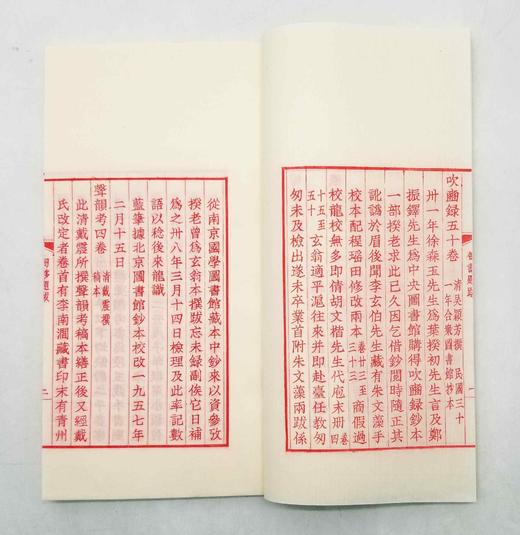 吹豳録五十卷 清吳穎芳撰 民國三十
一年合衆圖書館抄本
卅一年徐森玉先生爲葉揆初先生言及鄭
振鐸先生爲中央圖書館購得吹豳録鈔本
一部揆老求此已久因乞借鈔閲時隨正其
訛譌於眉後聞李玄伯先生藏有朱文藻手
校本配程瑶田修改兩本 卷廿三至三十三 商假過
校龍校無多即倩胡文楷先生代庖末册 卷四
十五至五十 玄翁適平滬往來并即赴臺任教匆
匆未及檢出遂未卒業首附朱文藻兩跋係
從南京國學圖書館藏本中鈔來以資參攷
揆老曾爲玄翁本撰跋忘未録副俟它日補
爲之卅八年三月十四日檢理及此率記數
語以稔後來龍識
藍筆據北京圖書館鈔本校改一九五七年
二月十五日
聲韻考四卷 清戴震撰
稿本
此清戴震所撰聲韻考稿本繕正後又經戴
氏改定者卷首有李南澗藏書印末有青州
二